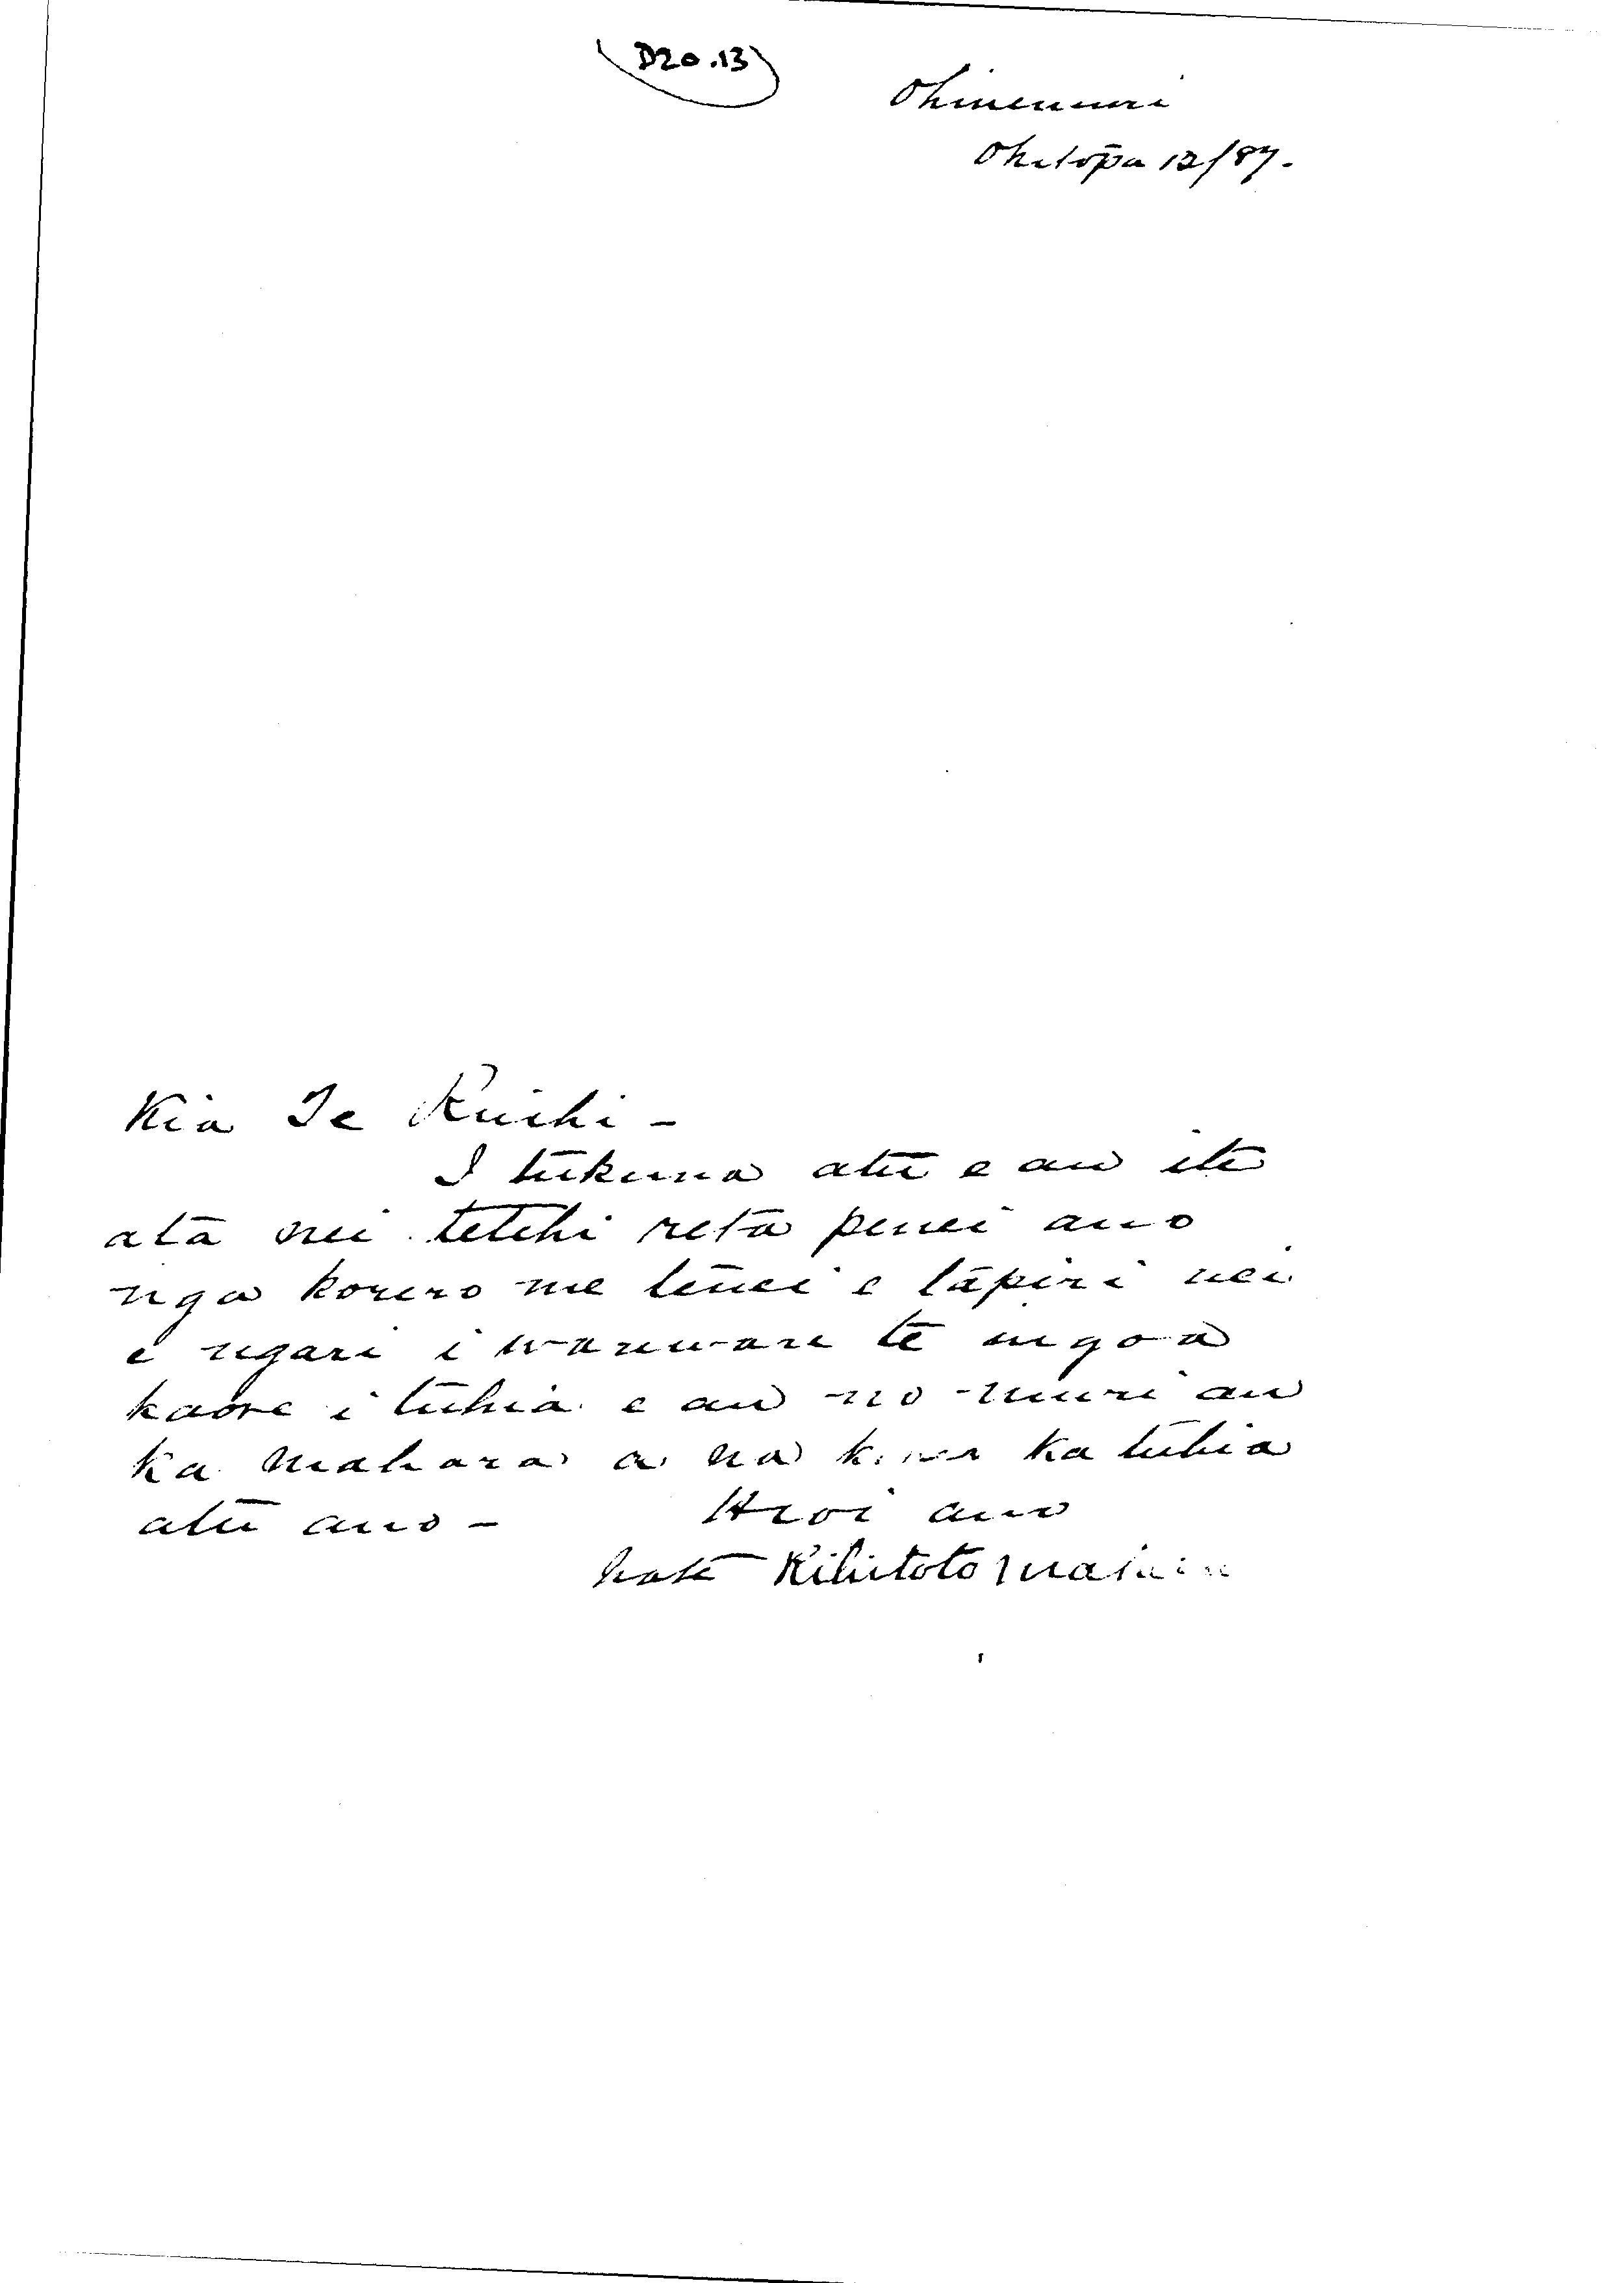 D20.13
Ohinemuri
Oketopa 12/87.
Kia Te Ruihi -
I tukuna atu e au ite
ata nei tetehi reta penei ano
nga korero me tenei e tapiri nei
e ngari i warware te ingoa
kaore i tuhia e au no muri au
ka mahara a na ka tuhia
atu ano - Heoi ano
na te Kihitoto